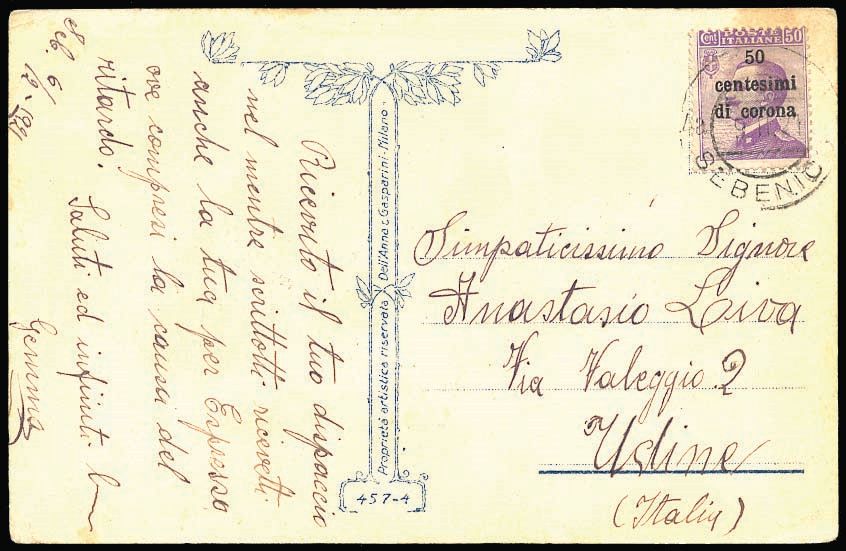 Ricevuto il tuo dispaccio
nel mentre scrittoti ricevetti
anche la tua per Espresso
ove compresi la causa del
ritardo. Saluti ed infiniti
Gemma
Proprietà artistica riservata Dell'Anna & Gasparini-Milano
457-4
POSTE
ITALIANE
Cent 50
50
centesimi
di corona
SEBENIC
Simpaticissimo Signore
Anastasio Liva
Via Valeggio. 2
Udine
(Italia)